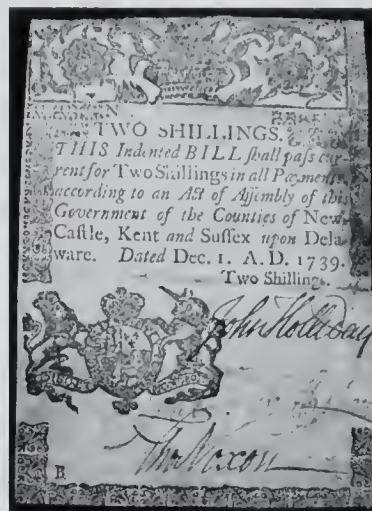 TWO SHILLINGS.
THIS Indented BILL ſhall paſs cur-
rent for Two Shillings in all Payments
according to an Act of Aſſembly of this
Government of the Counties of New-
Caſtle, Kent and Suſſex upon Dela-
ware. Dated Dec. 1. A.D. 1739.
Two Shillings.
John Holliday
Tho Noxon
B